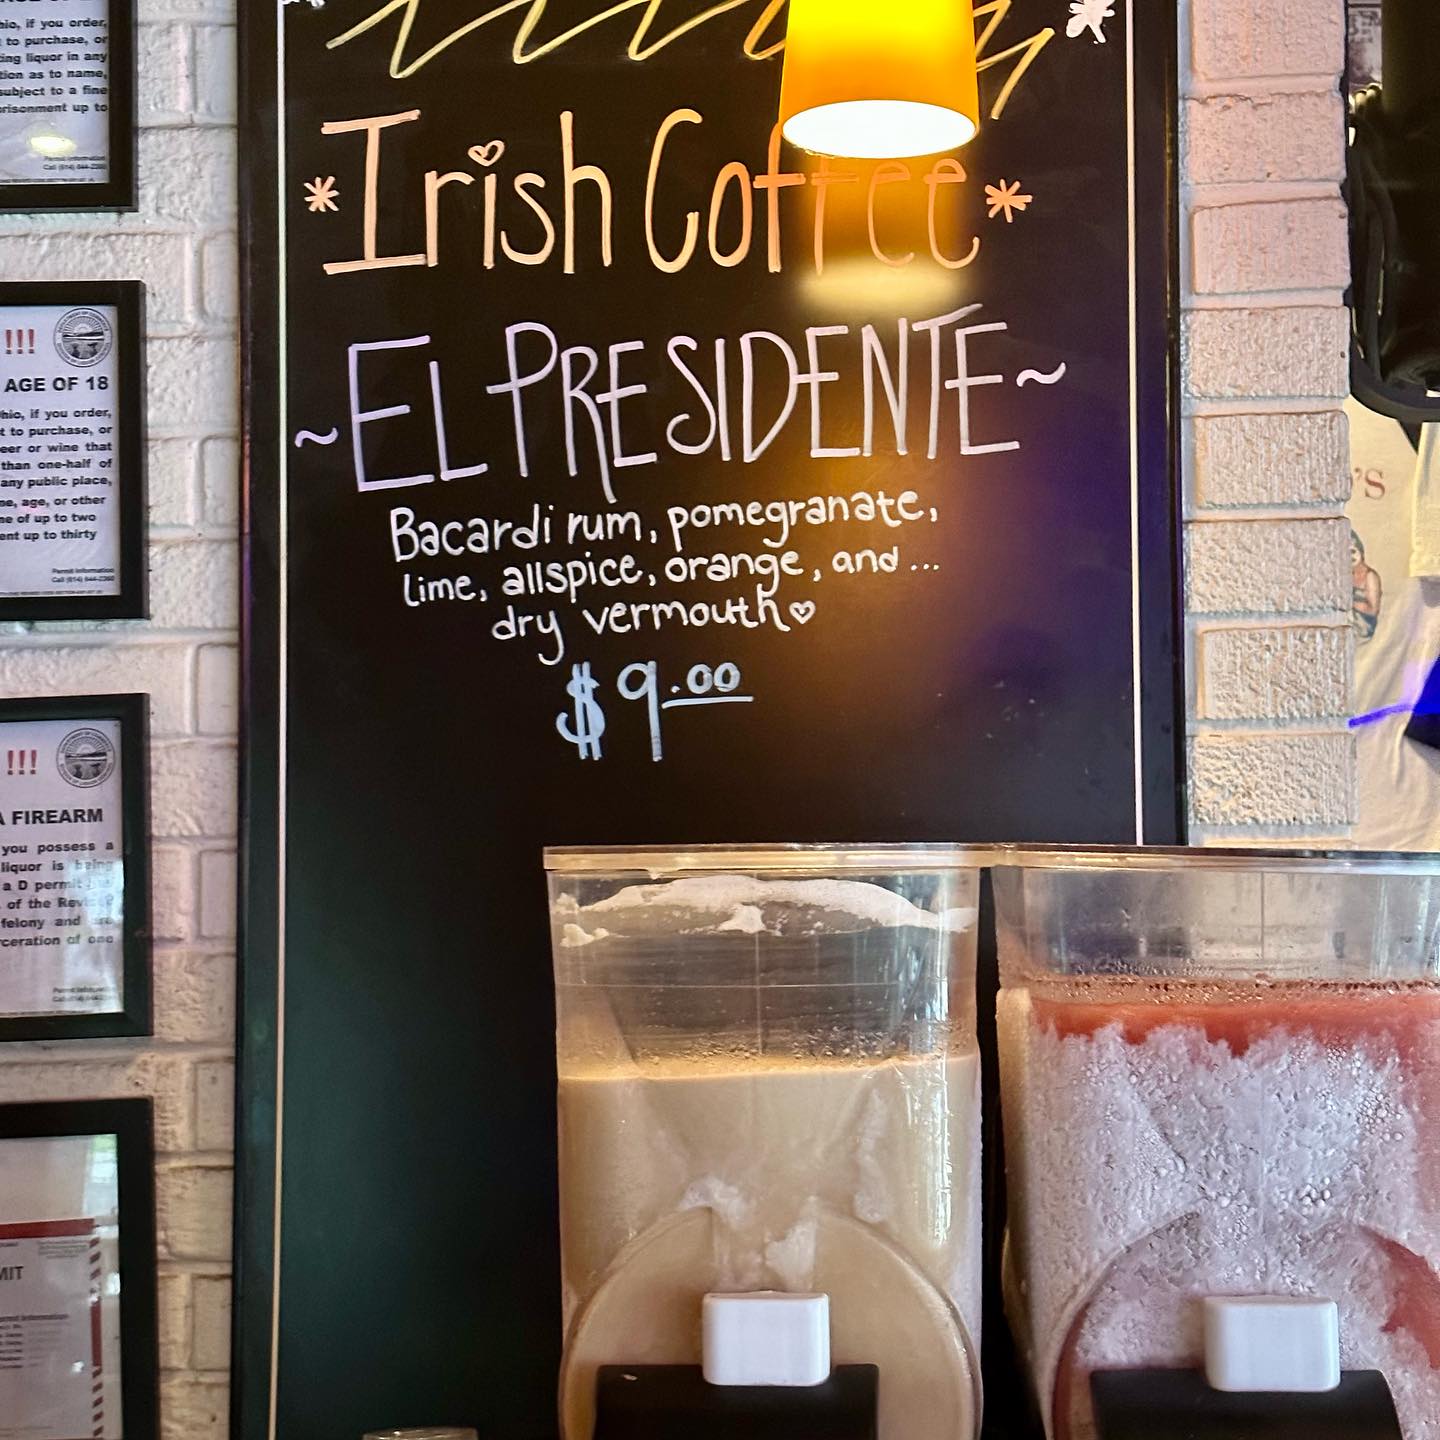 Irish Coffee
~EL PRESIDENTE~
Bacardi rum, pomegranate,
lime, allspice, orange, and ...
dry vermouth
$9.00
hio, if you order,
to purchase, or
ing liquor in any
tion as to name,
subject to a fine
prisonment up to
Permit Information
Call (614) 644-2360
!!!
AGE OF 18
hio, if you order,
t to purchase, or
eer or wine that
than one-half of
any public place,
ne, age, or other
ne of up to two
ent up to thirty
Permit Information
Call (614) 644-2360
!!!
A FIREARM
you possess a
liquor is being
a D permit
of the
felony and are
rceration of one
MIT
'S